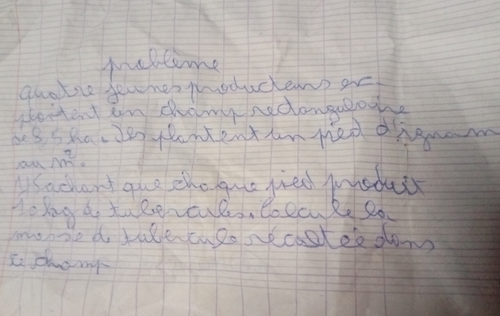 problème
quatre jeunes producteurs ex-
ploitent un champ rectangulaire
de 3,5 ha. Ils plantent un pied d'ignam
au m².
1/ Sachant que chaque pied produit
10kg de tubercules. Calcule la
masse de tubercule récoltée dans
ce champ